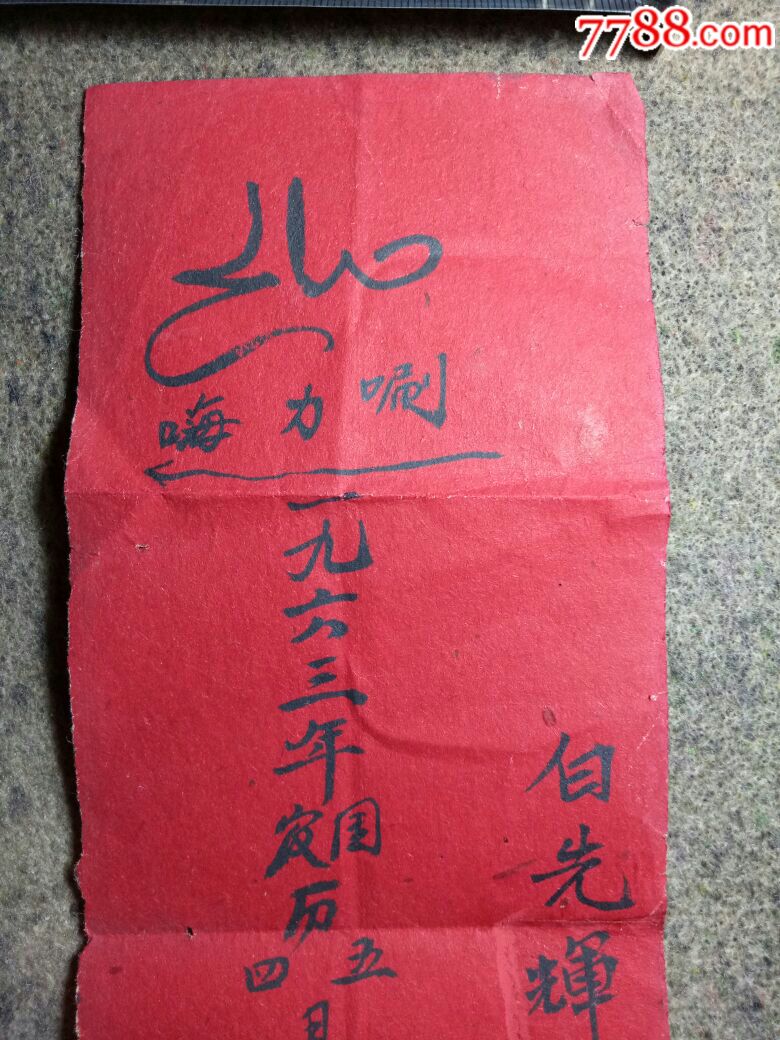 7788.com
唰力嗨
白先輝
一九六三年
国农历
五四月